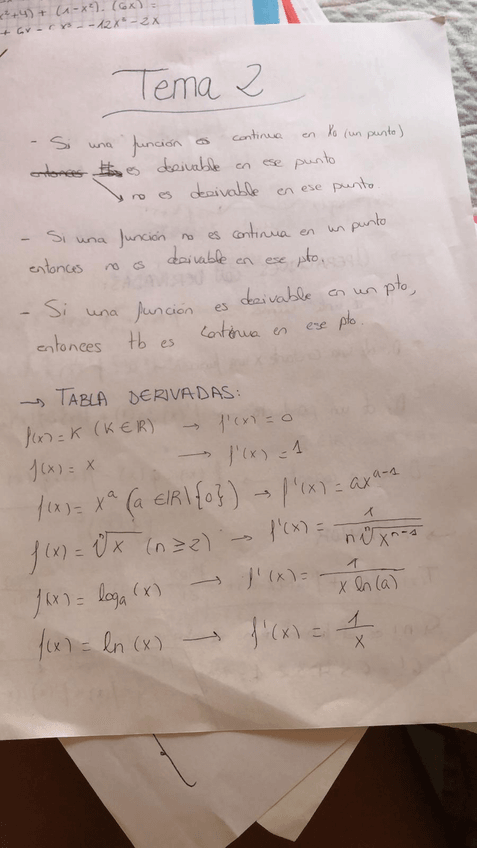 x²+4) + (1-x²). (6x) =
Tema 2
- Si una función es continua en x₀ (un punto)
entonces tb es derivable en ese punto
no es derivable en ese punto.
- Si una función no es continua en un punto
entonces no es derivable en ese pto.
- Si una función es derivable en un pto,
entonces tb es continua en ese pto.
→ TABLA DERIVADAS:
f(x) = K (K∈ℝ) → f'(x) = 0
f(x) = x → f'(x) = 1
f(x) = xᵃ (a ∈ ℝ\{0}) → f'(x) = axᵃ⁻¹
f(x) = ⁿ√x (n ≥ 2) → f'(x) = 1/(n ⁿ√xⁿ⁻¹)
f(x) = logₐ(x) → f'(x) = 1/(x ln(a))
f(x) = ln(x) → f'(x) = 1/x